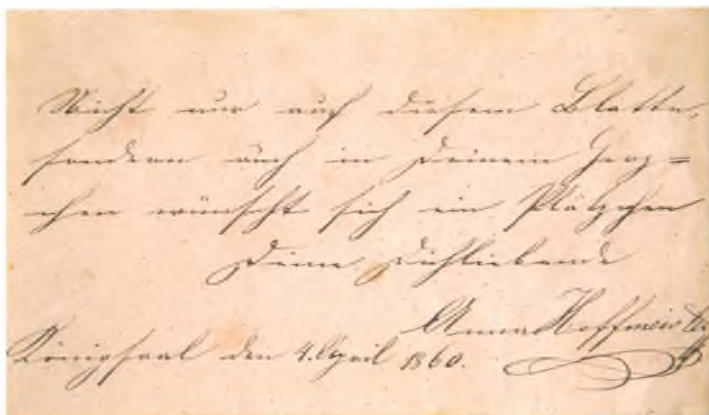 Nicht nur auf diesem Blatte,
sondern auch in Deinem Herz=
chen wünscht sich ein Plätzchen
Deine Dichliebende
Anna Hoffmeister
Königsaal den 4. April 1860.